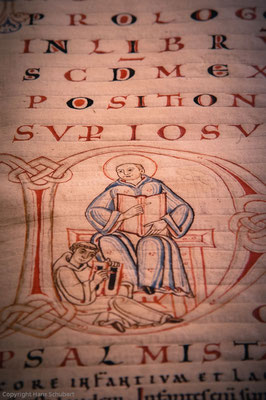 PROLOG
IN LIBR
SCDM EX
POSITION
SVP IOSV
PSALMISTA
ORE INFANTIUM ET LAC
Infantes
Copyright Hans Schubert